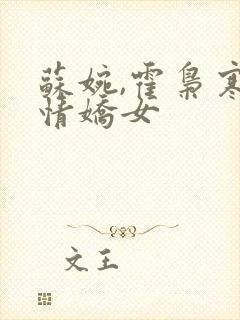 蘇婉,霍梟寒
情嬌女
文王